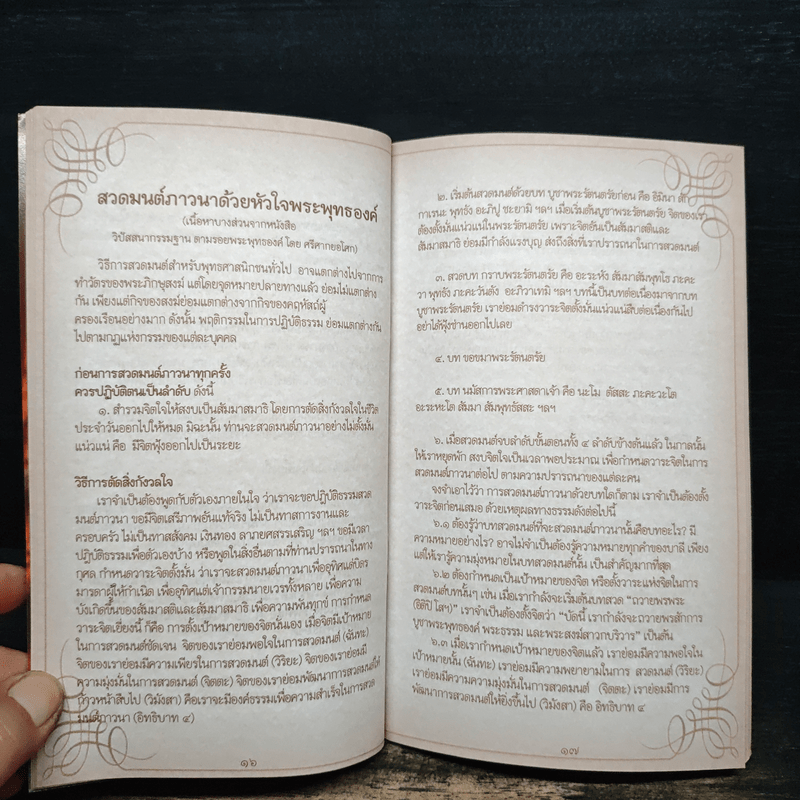 สวดมนต์ภาวนาด้วยหัวใจพระพุทธองค์
(เนื้อหาบางส่วนจากหนังสือ
วิปัสสนากรรมฐาน ตามรอยพระพุทธองค์ โดย ศรีศากยอโศก)
วิธีการสวดมนต์สำหรับพุทธศาสนิกชนทั่วไป อาจแตกต่างไปจากการ
ทำวัตรของพระภิกษุสงฆ์ แต่โดยจุดหมายปลายทางแล้ว ย่อมไม่แตกต่าง
กัน เพียงแต่กิจของสงฆ์ย่อมแตกต่างจากกิจของคฤหัสถ์ผู้
ครองเรือนอย่างมาก ดังนั้น พฤติกรรมในการปฏิบัติธรรม ย่อมแตกต่างกัน
ไปตามกฎแห่งกรรมของแต่ละบุคคล
ก่อนการสวดมนต์ภาวนาทุกครั้ง
ควรปฏิบัติตนเป็นลำดับ ดังนี้
๑. สำรวมจิตใจให้สงบเป็นสัมมาสมาธิ โดยการตัดสิ่งกังวลใจในชีวิต
ประจำวันออกไปให้หมด มิฉะนั้น ท่านจะสวดมนต์ภาวนาอย่างไม่ตั้งมั่น
แน่วแน่ คือ มีจิตฟุ้งออกไปเป็นระยะ
วิธีการตัดสิ่งกังวลใจ
เราจำเป็นต้องพูดกับตัวเองภายในใจ ว่าเราจะขอปฏิบัติธรรมสวด
มนต์ภาวนา ขอมีจิตเสรีภาพอันแท้จริง ไม่เป็นทาสการงานและ
ครอบครัว ไม่เป็นทาสสังคม เงินทอง ลาภยศสรรเสริญ ฯลฯ ขอมีเวลา
ปฏิบัติธรรมเพื่อตัวเองบ้าง หรือพูดในสิ่งอื่นตามที่ท่านปรารถนาในทาง
กุศล กำหนดวาระจิตตั้งมั่น ว่าเราจะสวดมนต์ภาวนาเพื่ออุทิศแต่บิดา
มารดาผู้ให้กำเนิด เพื่ออุทิศแต่เจ้ากรรมนายเวรทั้งหลาย เพื่อความ
บังเกิดขึ้นของสัมมาสติและสัมมาสมาธิ เพื่อความพ้นทุกข์ การกำหนด
วาระจิตเยี่ยงนี้ ก็คือ การตั้งเป้าหมายของจิตนั่นเอง เมื่อจิตมีเป้าหมาย
ในการสวดมนต์ชัดเจน จิตของเราย่อมพอใจในการสวดมนต์ (ฉันทะ)
จิตของเราย่อมมีความเพียรในการสวดมนต์ (วิริยะ) จิตของเราย่อมมี
ความมุ่งมั่นในการสวดมนต์ (จิตตะ) จิตของเราย่อมพัฒนาการสวดมนต์ให้
ก้าวหน้าสืบไป (วิมังสา) คือเราจะมีองค์ธรรมเพื่อความสำเร็จในการสวด
มนต์ภาวนา (อิทธิบาท ๔)
๑๖
๒. เริ่มต้นสวดมนต์ด้วยบท บูชาพระรัตนตรัยก่อน คือ อิมินา สัก
กาเรนะ พุทธัง อะภิปู ชะยามิ ฯลฯ เมื่อเริ่มต้นบูชาพระรัตนตรัย จิตของเรา
ต้องตั้งมั่นแน่วแน่ในพระรัตนตรัย เพราะจิตอันเป็นสัมมาสติและ
สัมมาสมาธิ ย่อมมีกำลังแรงบุญ ส่งถึงสิ่งที่เราปรารถนาในการสวดมนต์
๓. สวดบท กราบพระรัตนตรัย คือ อะระหัง สัมมาสัมพุทโธ ภะคะ
วา พุทธัง ภะคะวันตัง อะภิวาเทมิ ฯลฯ บทนี้เป็นบทต่อเนื่องมาจากบท
บูชาพระรัตนตรัย เราย่อมดำรงวาระจิตตั้งมั่นแน่วแน่สืบต่อเนื่องกันไป
อย่าได้ฟุ้งซ่านออกไปเลย
๔. บท ขอขมาพระรัตนตรัย
๕. บท นมัสการพระศาสดาเจ้า คือ นะโม ตัสสะ ภะคะวะโต
อะระหะโต สัมมา สัมพุทธัสสะ ฯลฯ
๖. เมื่อสวดมนต์จบลำดับขั้นตอนทั้ง ๕ ลำดับข้างต้นแล้ว ในกาลนั้น
ให้เราหยุดพัก สงบจิตใจเป็นเวลาพอประมาณ เพื่อกำหนดวาระจิตในการ
สวดมนต์ภาวนาต่อไป ตามความปรารถนาของแต่ละคน
จงจำเอาไว้ว่า การสวดมนต์ภาวนาด้วยบทใดก็ตาม เราจำเป็นต้องตั้ง
วาระจิตก่อนเสมอ ด้วยเหตุผลทางธรรมดังต่อไปนี้
๖.๑ ต้องรู้ว่าบทสวดมนต์ที่จะสวดมนต์ภาวนานั้นคือบทอะไร? มี
ความหมายอย่างไร? อาจไม่จำเป็นต้องรู้ความหมายทุกคำของบาลี เพียง
แต่ให้เรารู้ความมุ่งหมายในบทสวดมนต์นั้น เป็นสำคัญมากที่สุด
๖.๒ ต้องกำหนดเป็นเป้าหมายของจิต หรือตั้งวาระแห่งจิตในการ
สวดมนต์บทนั้นๆ เช่น เมื่อเรากำลังจะเริ่มต้นบทสวด "ถวายพรพระ
(อิติปิ โสฯ)" เราจำเป็นต้องตั้งจิตว่า "บัดนี้ เรากำลังจะถวายพรสักการ
บูชาพระพุทธองค์ พระธรรม และพระสงฆ์สาวกบริวาร" เป็นต้น
๖.๓ เมื่อเรากำหนดเป้าหมายของจิตแล้ว เราย่อมมีความพอใจใน
เป้าหมายนั้น (ฉันทะ) เราย่อมมีความพยายามในการ สวดมนต์ (วิริยะ)
เราย่อมมีความความมุ่งมั่นในการสวดมนต์ (จิตตะ) เราย่อมมีการ
พัฒนาการสวดมนต์ให้ยิ่งขึ้นไป (วิมังสา) คือ อิทธิบาท ๔
๑๗